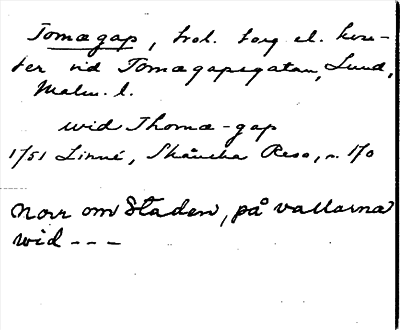 Tomægap, trol. torg el. kvar-
ter vid Tomægapsgatan, Lund,
Malm. l.
wid Thomæ-gap
1751 Linné, Skåncka Resa, s. 170
Norr om Staden, på vallarna
wid - - -